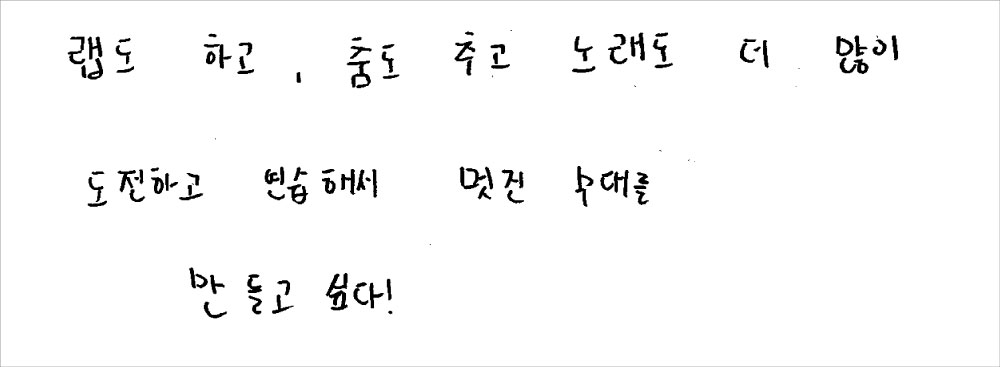 랩도 하고, 춤도 추고 노래도 더 많이
도전하고 연습해서 멋진 무대를
만들고 싶다!